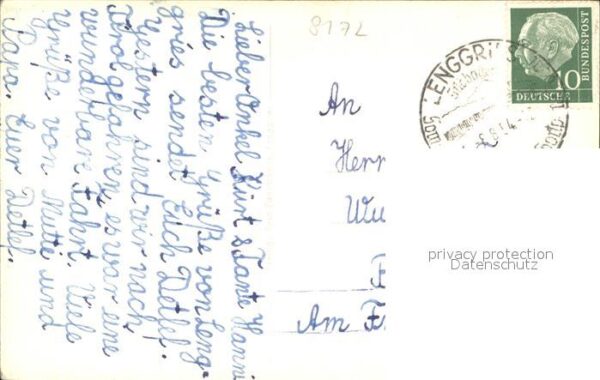 8172
Lieber Onkel Kurt & Tante Hanni
Die besten Grüße von Leng-
gries sendet Euch Detlef.
Gestern sind wir nach
Tirol gefahren, es war eine
wunderbare Fahrt. Viele
Grüße von Mutti und
Papa. Euer Detlef.
An
Herr
Wu
Am
LENGGRIES
10
DEUTSCHE
BUNDESPOST
privacy protection
Datenschutz